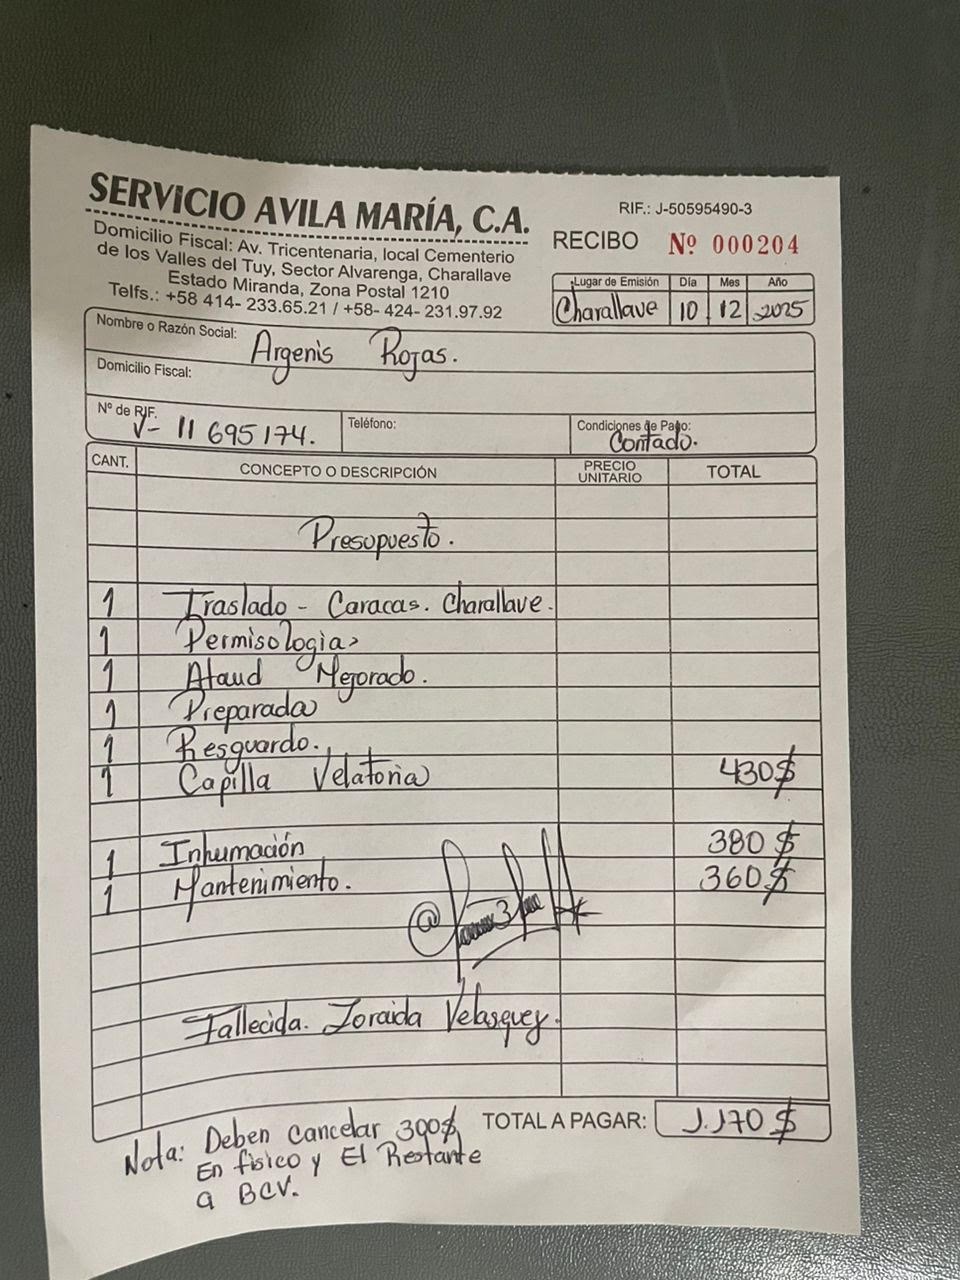 SERVICIO AVILA MARÍA, C.A.
Domicilio Fiscal: Av. Tricentenaria, local Cementerio
de los Valles del Tuy, Sector Alvarenga, Charallave
Estado Miranda, Zona Postal 1210
Telfs.: +58 414- 233.65.21 / +58- 424- 231.97.92
RIF.: J-50595490-3
RECIBO Nº 000204
Lugar de Emisión Día Mes Año
Charallave 10 12 2025
Nombre o Razón Social: Argenis Rojas.
Domicilio Fiscal:
Nº de RIF. V- 11 695 174. Teléfono: Condiciones de Pago: Contado.
CANT. CONCEPTO O DESCRIPCIÓN PRECIO UNITARIO TOTAL
Presopuesto.
1 Traslado - Caracas. Charallave.
1 Permisologia
1 Ataud Mejorado.
1 Preparada
1 Resguardo.
1 Capilla Velatoria 430$
1 Inhumación 380 $
1 Mantenimiento. 360$
Fallecida. Zoraida Velasquez.
TOTAL A PAGAR: 1.170 $
Nota: Deben cancelar 300$
En fisico y El Restante
a BCV.